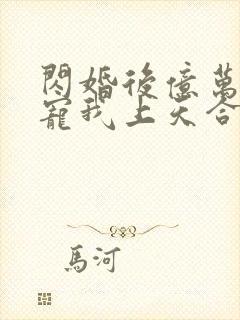 閃婚後億萬
寵我上天合
馬河